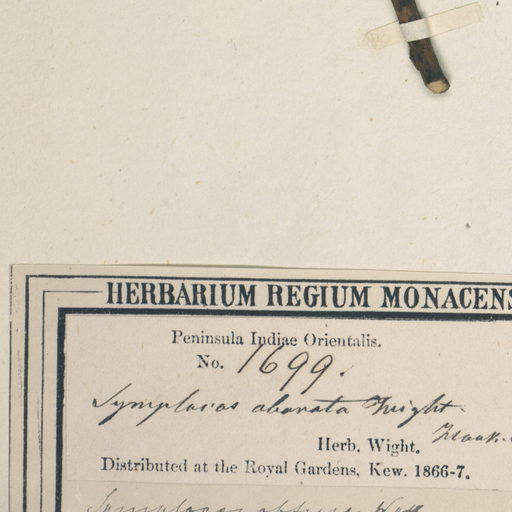 HERBARIUM REGIUM MONACENS
Peninsula Indiae Orientalis.
No. 1699.
Symplocos obovata Wight.
Herb. Wight.
Distributed at the Royal Gardens, Kew. 1866-7.
Symplocos